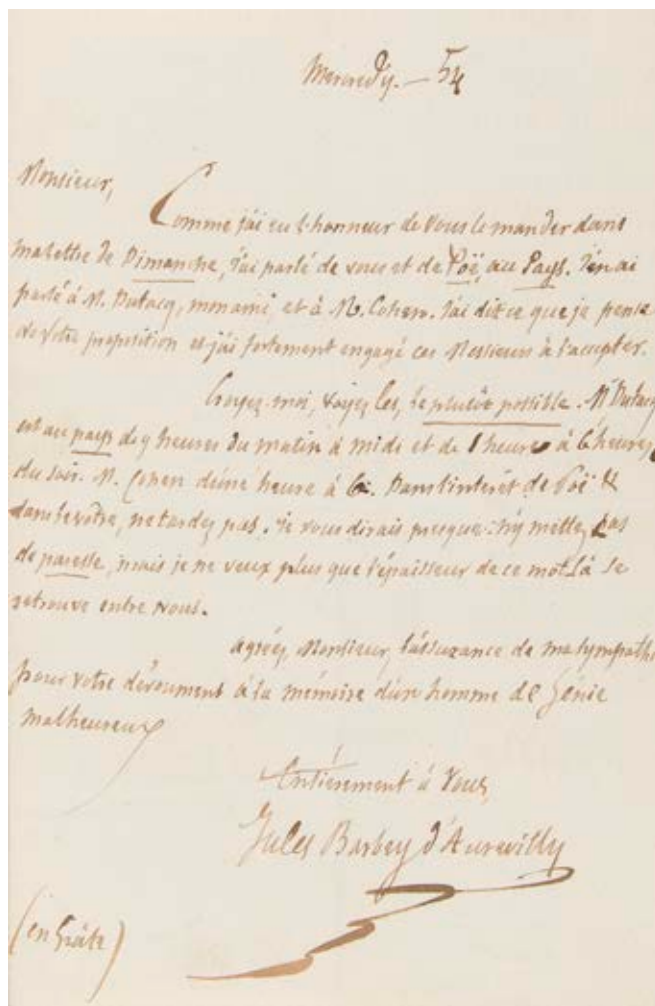 Mercredy. — 54
Monsieur,
Comme j'ai eu l'honneur de vous le mander dans
ma lettre de Dimanche, j'ai parlé de vous et de Poë, au Pays. J'en ai
parlé à M. Dutacq, mon ami, et à M. Cohen. J'ai dit ce que je pense
de votre proposition et j'ai fortement engagé ces Messieurs à l'accepter.
Croyez-moi, voyez les, le plutôt possible. Mr Dutacq
est au pays de 9 heures du matin à midi et de 1 heure à 6 heures
du soir. M. Cohen d'une heure à 6. Dans l'intérêt de Poë &
dans le vôtre, ne tardez pas. Je vous dirais presque: n'y mettez pas
de paresse, mais je ne veux plus que l'épaisseur de ce mot là se
retrouve entre nous.
Agréez, Monsieur, l'assurance de ma sympathie
pour votre dévoument à la mémoire d'un homme de Génie
malheureux
Entièrement à vous,
Jules Barbey d'Aurevilly
(en hâte)